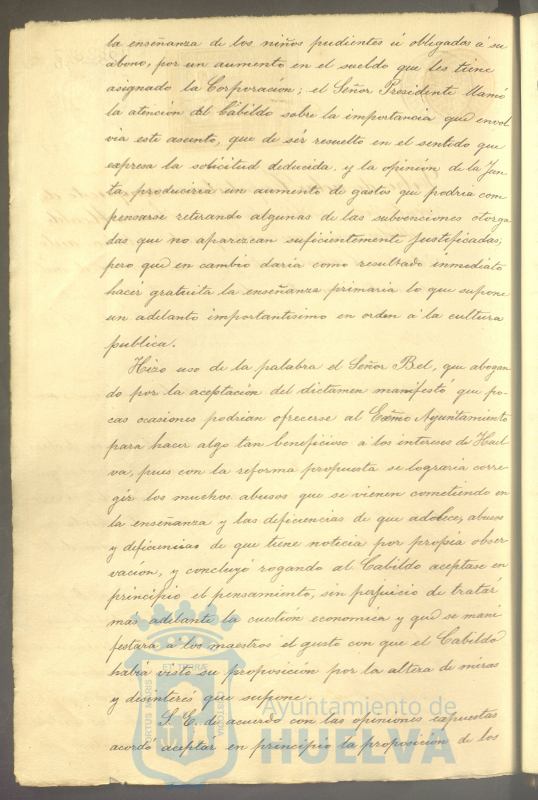 la enseñanza de los niños pudientes ú obligados á su
abono, por un aumento en el sueldo que les tiene
asignado la Corporación; el Señor Presidente llamó
la atención del Cabildo sobre la importancia que envol
via este asunto, que de ser resuelto en el sentido que
expresa la solicitud deducida y la opinión de la Jun
ta, produciría un aumento de gastos que podria com
pensarse retirando algunas de las subvenciones otorga
das que no aparezcan suficientemente justificadas,
pero que en cambio daria como resultado inmediato
hacer gratuita la enseñanza primaria lo que supone
un adelanto importantisimo en orden á la cultura
publica.
Hizo uso de la palabra el Señor Bel, que abogan
do por la aceptación del dictamen manifestó que po-
cas ocasiones podrian ofrecerse al Excmo Ayuntamiento
para hacer algo tan beneficioso á los intereses de Huel
va, pues con la reforma propuesta se lograria corre
gir los muchos abusos que se vienen cometiendo en
la enseñanza y las deficiencias de que adolece, abusos
y deficiencias de que tiene noticia por propia obser
vación, y concluyó rogando al Cabildo aceptase en
principio el pensamiento, sin perjuicio de tratar
mas adelante la cuestión economica y que se mani
festara á los maestros el gusto con que el Cabildo
habia visto su proposición por la alteza de miras
y desinterés que supone.
S. E. de acuerdo con las opiniones expuestas
acordó aceptar en principio la proposición de los
Ayuntamiento de
HUELVA
PORTUS MARIS
ET TERRÆ
CUSTODIA